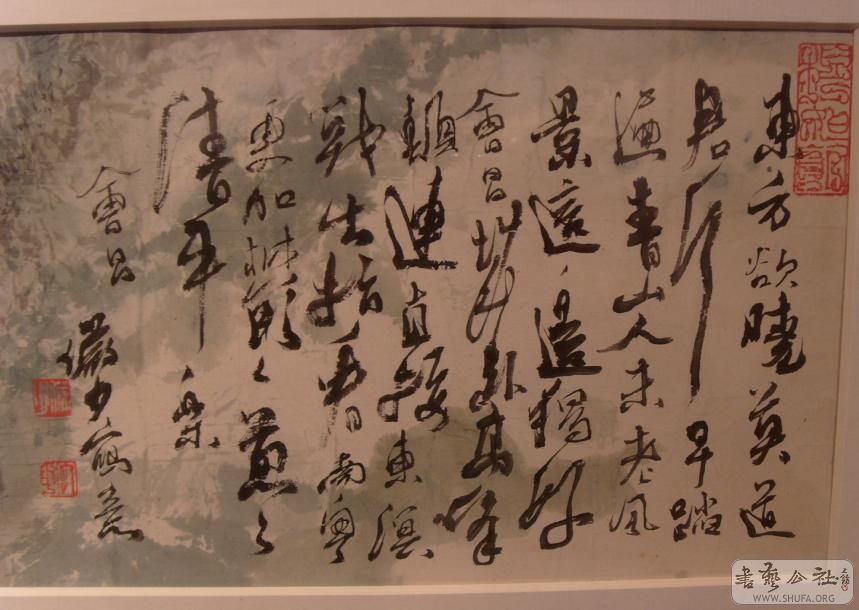 東方欲曉莫道
君行早踏
遍青山人未老風
景這邊獨好
會昌城外高峰
顛連直接東溟
戰士指看南粵
更加鬱々葱々
清平樂
會昌
儼少寫意
書藝公社
WWW.SHUFA.ORG